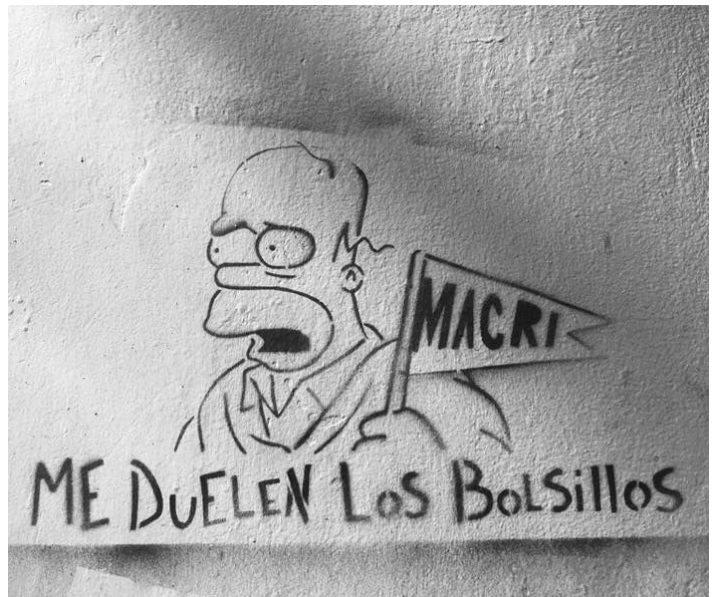 MACRI
ME DUELEN LOS BOLSillOS